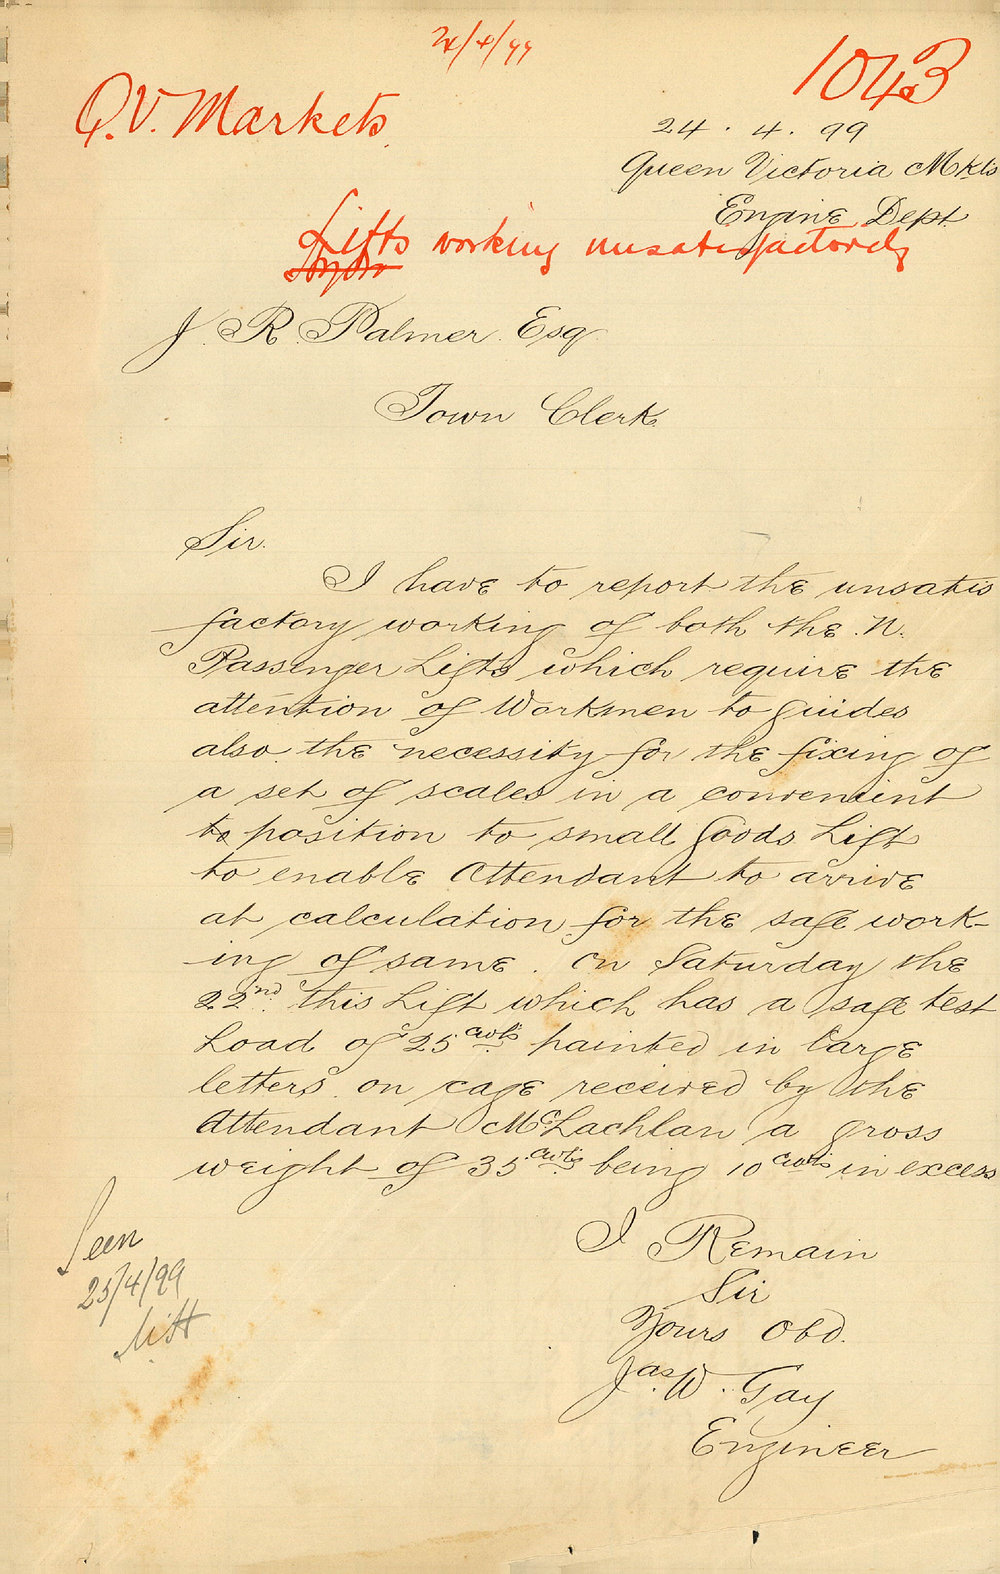 24/4/99
1043
Q.V. Markets
24 . 4 . 99
Queen Victoria Mkts
Engine Dept.
Lifts working unsatisfactorily
J. R. Palmer. Esq.
Town Clerk.
Sir.
I have to report the unsatis
factory working of both the N.
Passenger Lifts which require the
attention of Workmen to guides
also the necessity for the fixing of
a set of scales in a convenient
to position to small Goods Lift
to enable Attendant to arrive
at calculation for the safe work-
ing of same. On Saturday the
22nd. this Lift which has a safe test
Load of 25 cwts painted in large
letters on cage received by the
Attendant McLachlan a gross
weight of 35 cwts being 10 cwts in excess
I Remain
Sir
Yours Obd.
Jas. W. Gay
Engineer
Seen
25/4/99